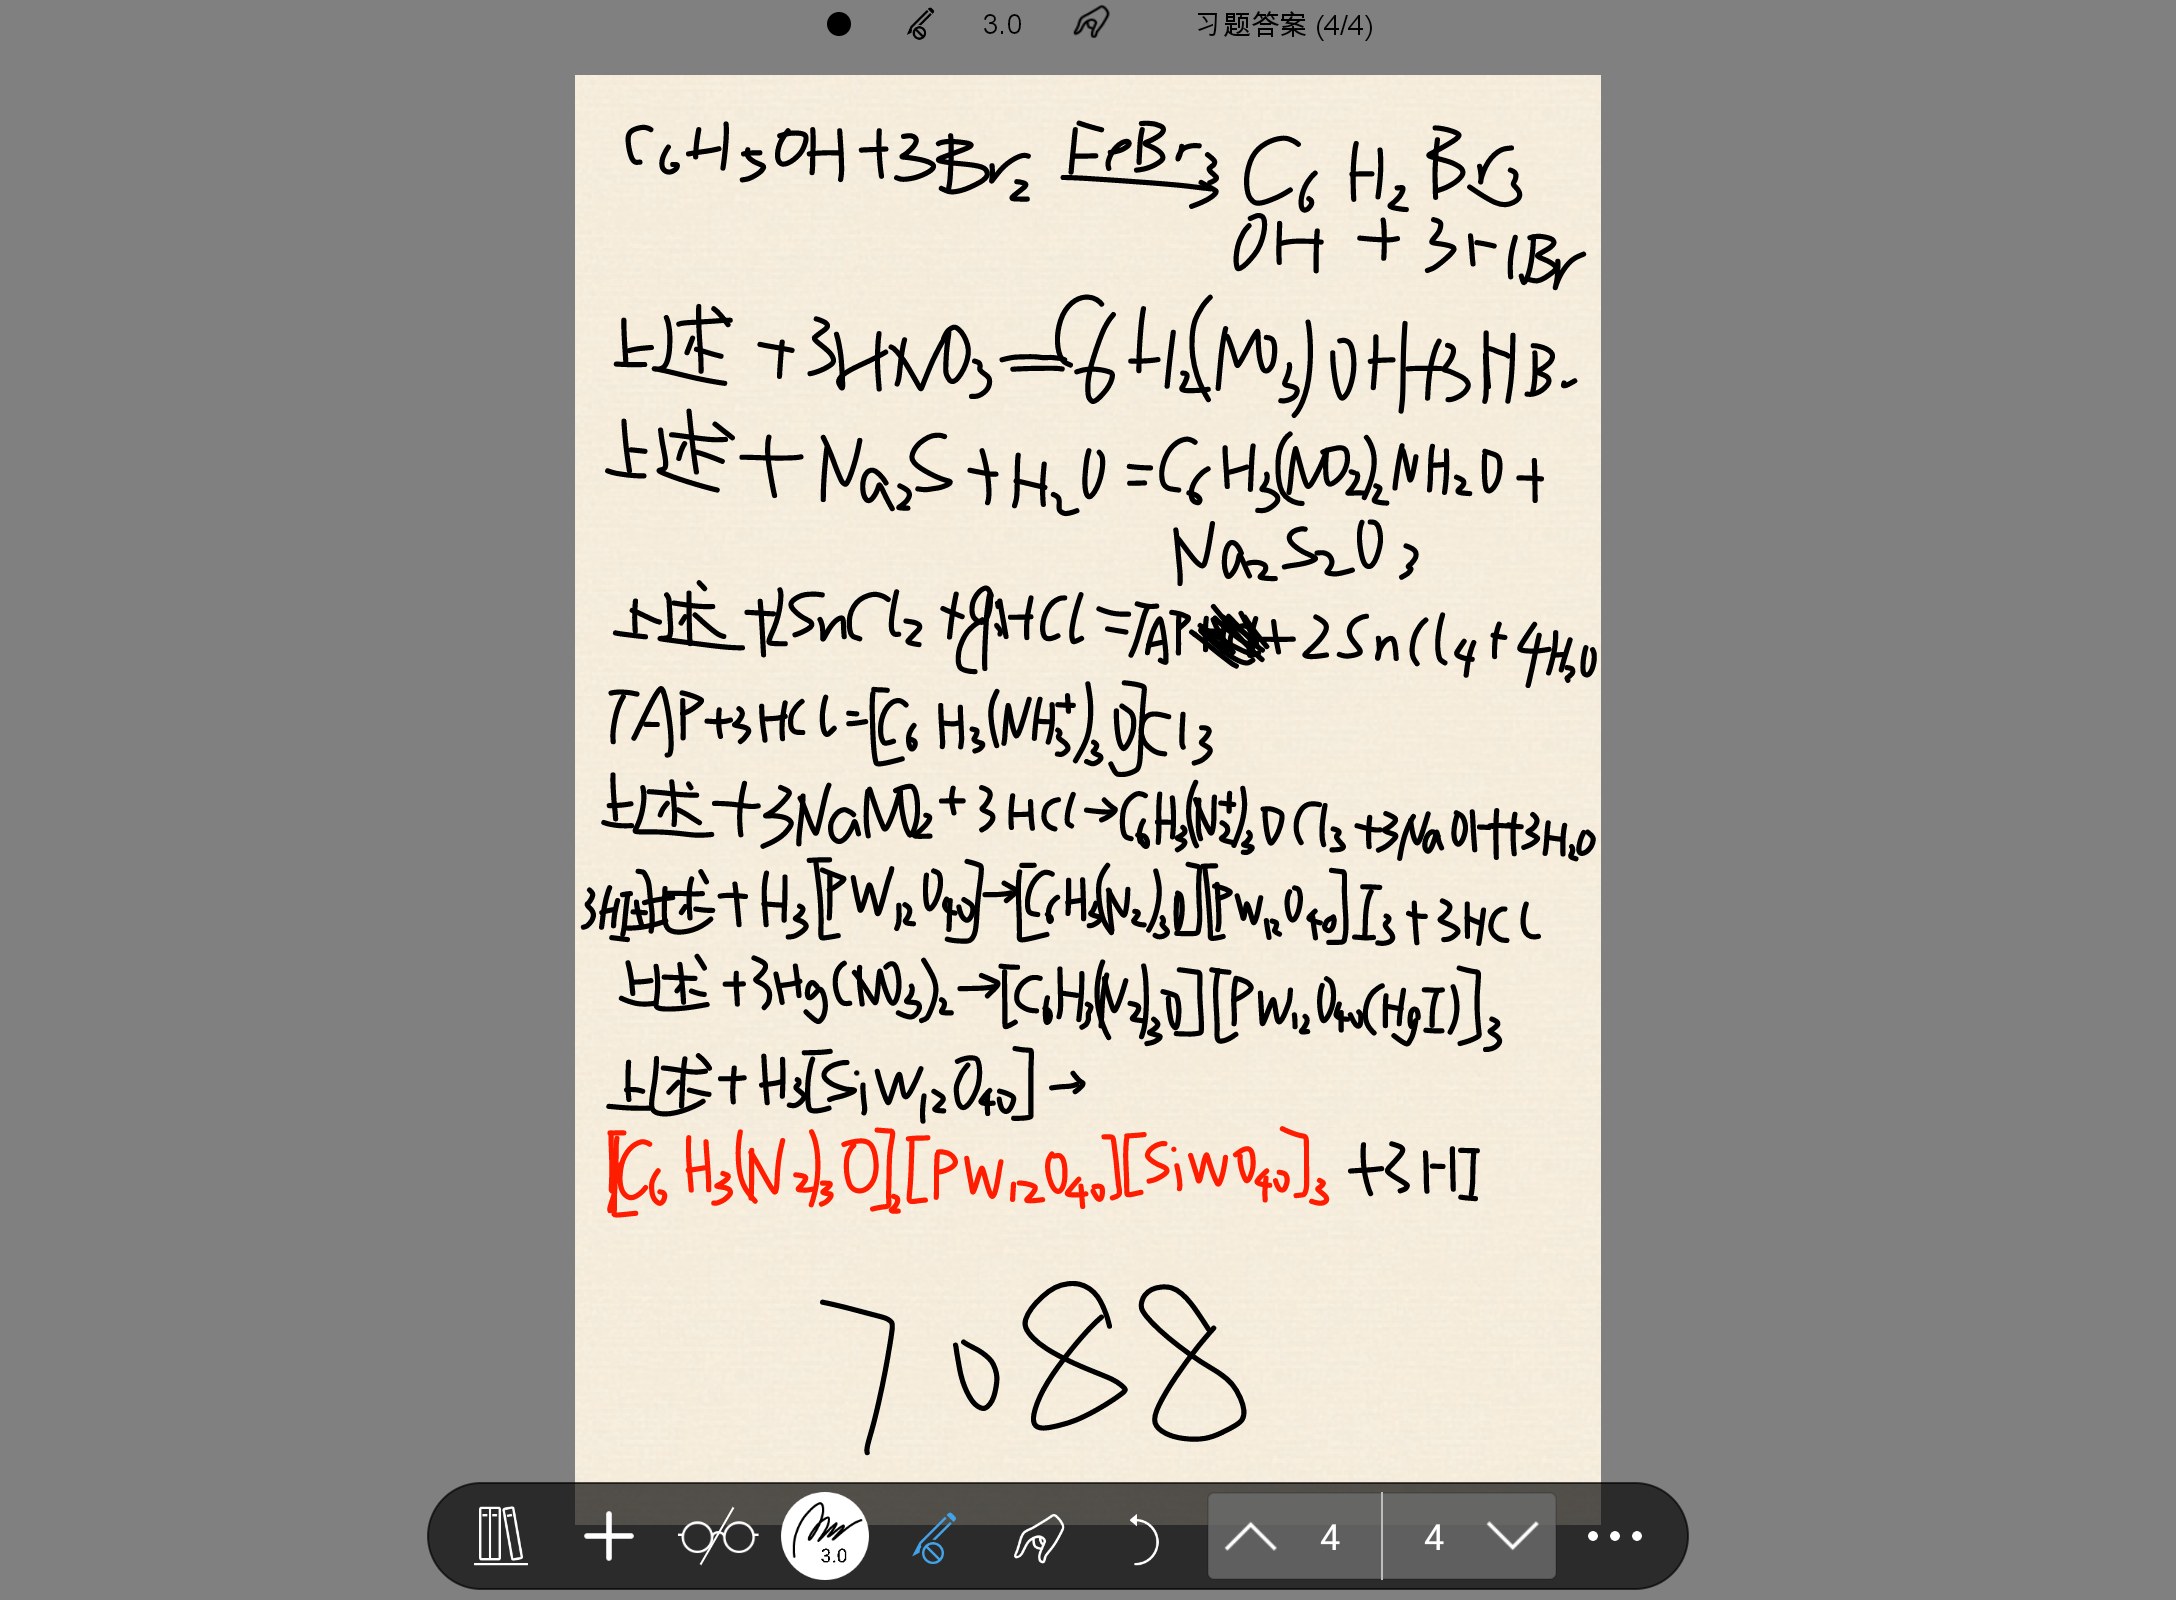 3.0 习题答案 (4/4)
C6H5OH+3Br2 FeBr3 C6H2Br3
OH + 3HBr
上述 +3HNO3=C6H2(NO3)OH+3HBr
上述+Na2S+H2O=C6H3(NO2)2NH2O+
Na2S2O3
上述+2SnCl2+8HCl=TAP+2SnCl4+4H2O
TAP+3HCl=[C6H3(NH3+)3O]Cl3
上述+3NaNO2+3HCl→C6H3(N2+)3OCl3+3NaOH+3H2O
3HI+上述+H3[PW12O40]→[C6H3(N2)3O][PW12O40]I3+3HCl
上述+3Hg(NO3)2→[C6H3(N2)3O][PW12O40(HgI)]3
上述+H3[SiW12O40]→
[C6H3(N2)3O]2[PW12O40][SiWO40]3 +3HI
7088
3.0 4 4